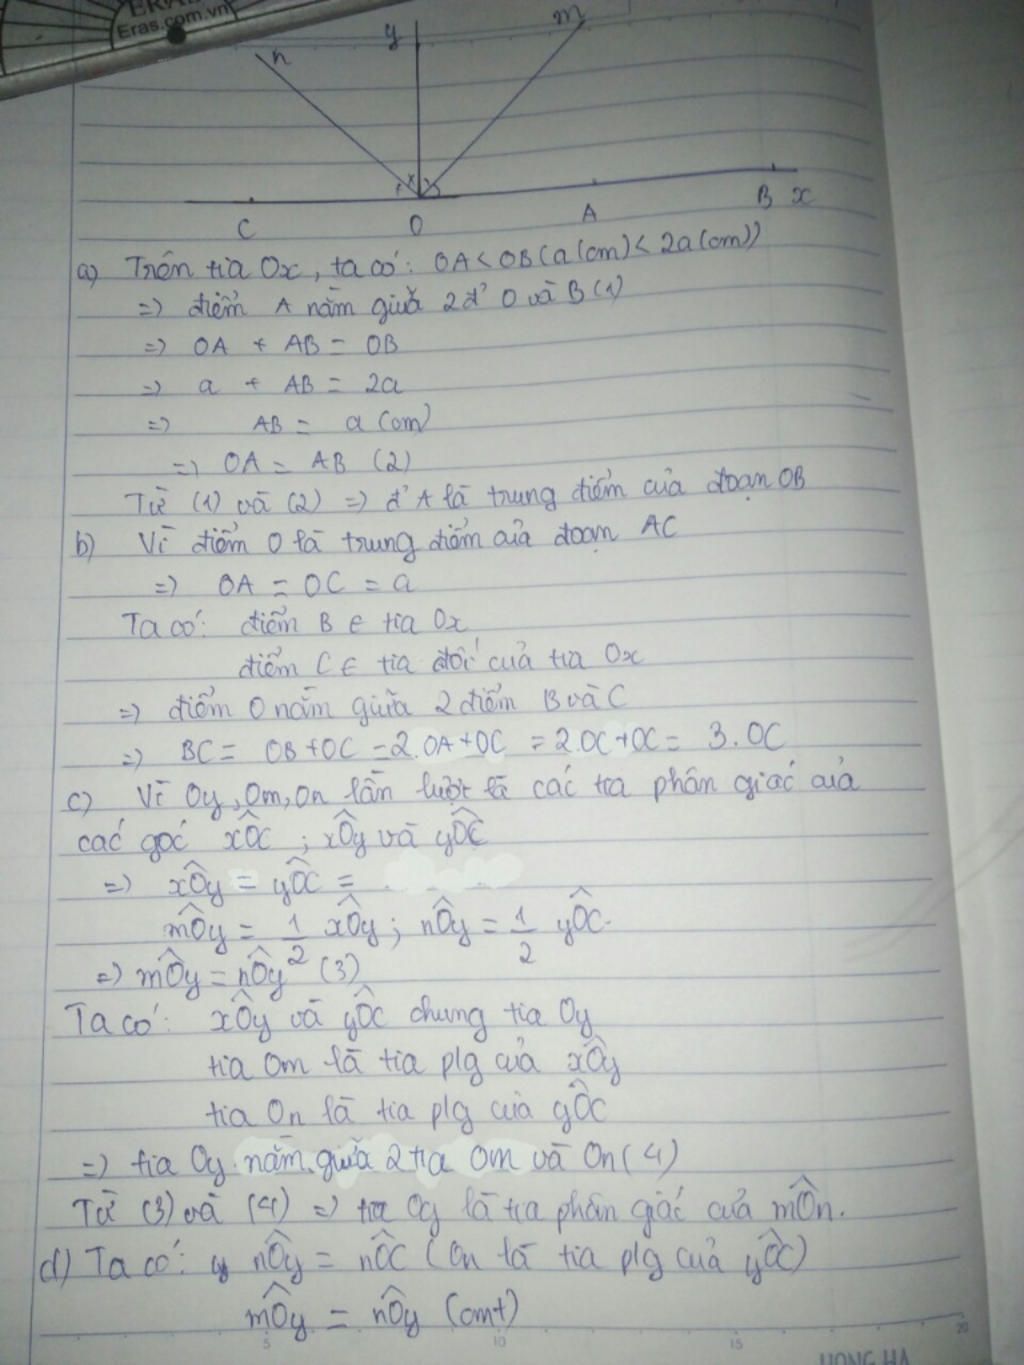 Eras.com.vn
n y m
C O A B x
a) Trên tia Ox, ta có: OA < OB (a(cm) < 2a(cm))
=> điểm A nằm giữa 2 đ' O và B (1)
=> OA + AB = OB
=> a + AB = 2a
=> AB = a (cm)
=> OA = AB (2)
Từ (1) và (2) => đ' A là trung điểm của đoạn OB
b) Vì điểm O là trung điểm của đoạn AC
=> OA = OC = a
Ta có: điểm B ∈ tia Ox
điểm C ∈ tia đối của tia Ox
=> điểm O nằm giữa 2 điểm B và C
=> BC = OB + OC = 2.OA + OC = 2.OC + OC = 3.OC
c) Vì Oy, Om, On lần lượt là các tia phân giác của
các góc xÔC ; xÔy và yÔC
=> xÔy = yÔC =
mÔy = 1/2 xÔy ; nÔy = 1/2 yÔC.
=> mÔy = nÔy (3)
Ta có: xÔy và yÔC chung tia Oy
tia Om là tia plg của xÔy
tia On là tia plg của yÔC
=> tia Oy nằm giữa 2 tia Om và On (4)
Từ (3) và (4) => tia Oy là tia phân giác của mÔn.
d) Ta có: nÔy = nÔC (On là tia plg của yÔC)
mÔy = nÔy (cmt)
5 10 15 20
HONG HA